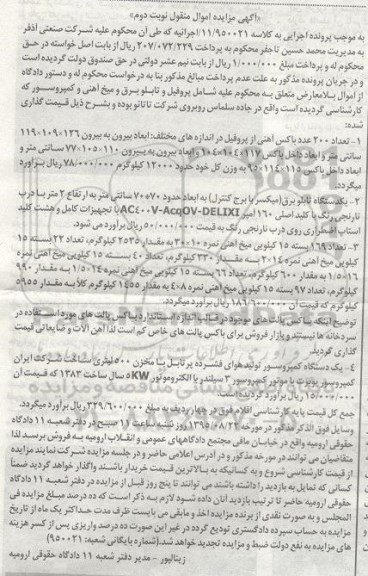 «آگهی مزایده اموال منقول نوبت دوم»
به موجب پرونده اجرایی به کلاسه ۱۱/۹۵۰۰۲۱ اجرائیه که طی آن محکوم علیه شرکت صنعتی آذفر
به مدیریت محمد حسین تاجفر محکوم به پرداخت ۲۰۷/۰۷۲/۲۲۹ ریال از بابت اصل خواسته در حق
محکوم له و پرداخت مبلغ ۱/۰۰۰/۰۰۰ ریال از بابت نیم عشر دولتی در حق صندوق دولت گردیده است
و در جریان پرونده مذکور به علت عدم پرداخت مبالغ مذکور بنا به درخواست محکوم له و دستور دادگاه
از اموال بلامعارض متعلق به محکوم علیه شامل پروفیل و تابلو برق و میخ آهنی و کمپروسور که
کارشناسی گردیده است واقع در جاده سلماس روبروی شرکت تاتائو بوده و بشرح ذیل قیمت گذاری
شده:
۱- تعداد ۲۰۰ عدد باکس آهنی از پروفیل در اندازه های مختلف: ابعاد بیرون به بیرون ۱۲۶-۱۰۹-۱۱۹
سانتی متر و ابعاد داخل باکس ۱۱۷-۱۰۴-۱۰۴ و ابعاد بیرون به بیرون ۱۱۰-۱۰۵-۷۷ سانتی متر و
ابعاد داخل باکس ۱۱۵-۱۱۴-۹۵ به وزن کل خود حدود ۱۲۰۰۰ کیلوگرم ۷۸/۰۰۰/۰۰۰ ریال برآورد
میگردد.
۲- یکدستگاه تابلو برق (میکسر یا برج کنترل) به ابعاد حدود ۷۰*۷۰ سانتی متر به ارتفاع ۲ متر با درب
نارنجی رنگ با کلید اصلی ۱۶۰ آمپر AC۴۰۰V-AcqOV-DELIXI با تجهیزات کامل و هشت کلید
استاپ اضطراری روی درب نارنجی رنگ به قیمت ۵۰/۰۰۰/۰۰۰ ریال برآورد می شود.
۳- تعداد ۱۶۹ بسته ۱۵ کیلویی میخ آهنی نمره ۱۰*۳۰ به مقدار ۲۵۳۵ کیلوگرم، تعداد ۲۲ بسته ۱۵
کیلویی میخ آهنی نمره ۱۴*۲ به مقدار ۳۳۰ کیلوگرم، تعداد ۴۰ بسته ۱۵ کیلویی میخ آهنی نمره
۱/۵*۱۶ به مقدار ۶۰۰ کیلوگرم، تعداد ۶۶ بسته ۱۵ کیلویی میخ آهنی نمره ۱/۵*۱۴ به مقدار ۹۹۰
کیلوگرم، تعداد ۹۷ بسته ۱۵ کیلویی میخ آهنی نمره ۸*۴ به مقدار ۱۴۵۵ کیلوگرم کلاً به مقدار ۵۹۵۵
کیلوگرم که قیمت آن ۱۸۶/۶۰۰/۰۰۰ ریال برآورد میگردد.
توضیح اینکه باکس پالت های موجود در قالب اندازه استاندارد باکس پالت های مورد استفاده در
سردخانه ها نیستند و بازار فروش برای باکس پالت های خاص کم است لذا آهن آلات و ضایعاتی قیمت
گذاری گردید.
۴- یک دستگاه کمپروسور تولید هوای فشرده پرتابل با مخزن ۵۰۰ لیتری ساخت شرکت ایران
کمپروسور یونیت با موتور کمپروسور ۳ سیلندر با الکتروموتور KW۵ سال ساخت ۱۳۸۳ که قیمت آن
۱۵/۰۰۰/۰۰۰ ریال برآورد گردیده است.
جمع کل قیمت پایه کارشناسی اقلام فوق در چهار ردیف به مبلغ ۳۲۹/۶۰۰/۰۰۰ ریال برآورد میگردد.
وسایل فوق الذکر مذکور در مورخه ۱۳۹۵/۰۸/۲۲ روز شنبه ساعت ۱۱ صبح در دفتر شعبه ۱۱ دادگاه
حقوقی ارومیه واقع در خیابان مافی مجتمع دادگاههای عمومی و انقلاب ارومیه به فروش برسد لذا
متقاضیان می توانند در مورخه مذکور و در آدرس اعلامی حاضر و در جلسه مزایده شرکت نمایند مزایده
از قیمت کارشناسی شروع و به کسانیکه به بالاترین قیمت خریدار باشند واگذار خواهد گردید ضمناً
کسانی که تمایل به بازدید را داشته باشند می توانند تا پنج روز قبل از مزایده در دفتر شعبه ۱۱ دادگاه
حقوقی ارومیه حاضر تا ترتیب بازدید آنان داده شود لازم به ذکر است که ده درصد مبلغ مزایده فی
المجلس و به صورت نقدی از برنده مزایده اخذ و مابقی می بایست ظرف مدت حداکثر یک ماه از تاریخ
مزایده به حساب سپرده دادگستری تودیع گردد در غیر این صورت ده درصد واریزی پس از کسر هزینه
های مزایده به نفع دولت ضبط و مزایده تجدید خواهد شد. (شماره بایگانی شعبه: ۹۵۰۰۲۱)
زینالپور - مدیر دفتر شعبه ۱۱ دادگاه حقوقی ارومیه